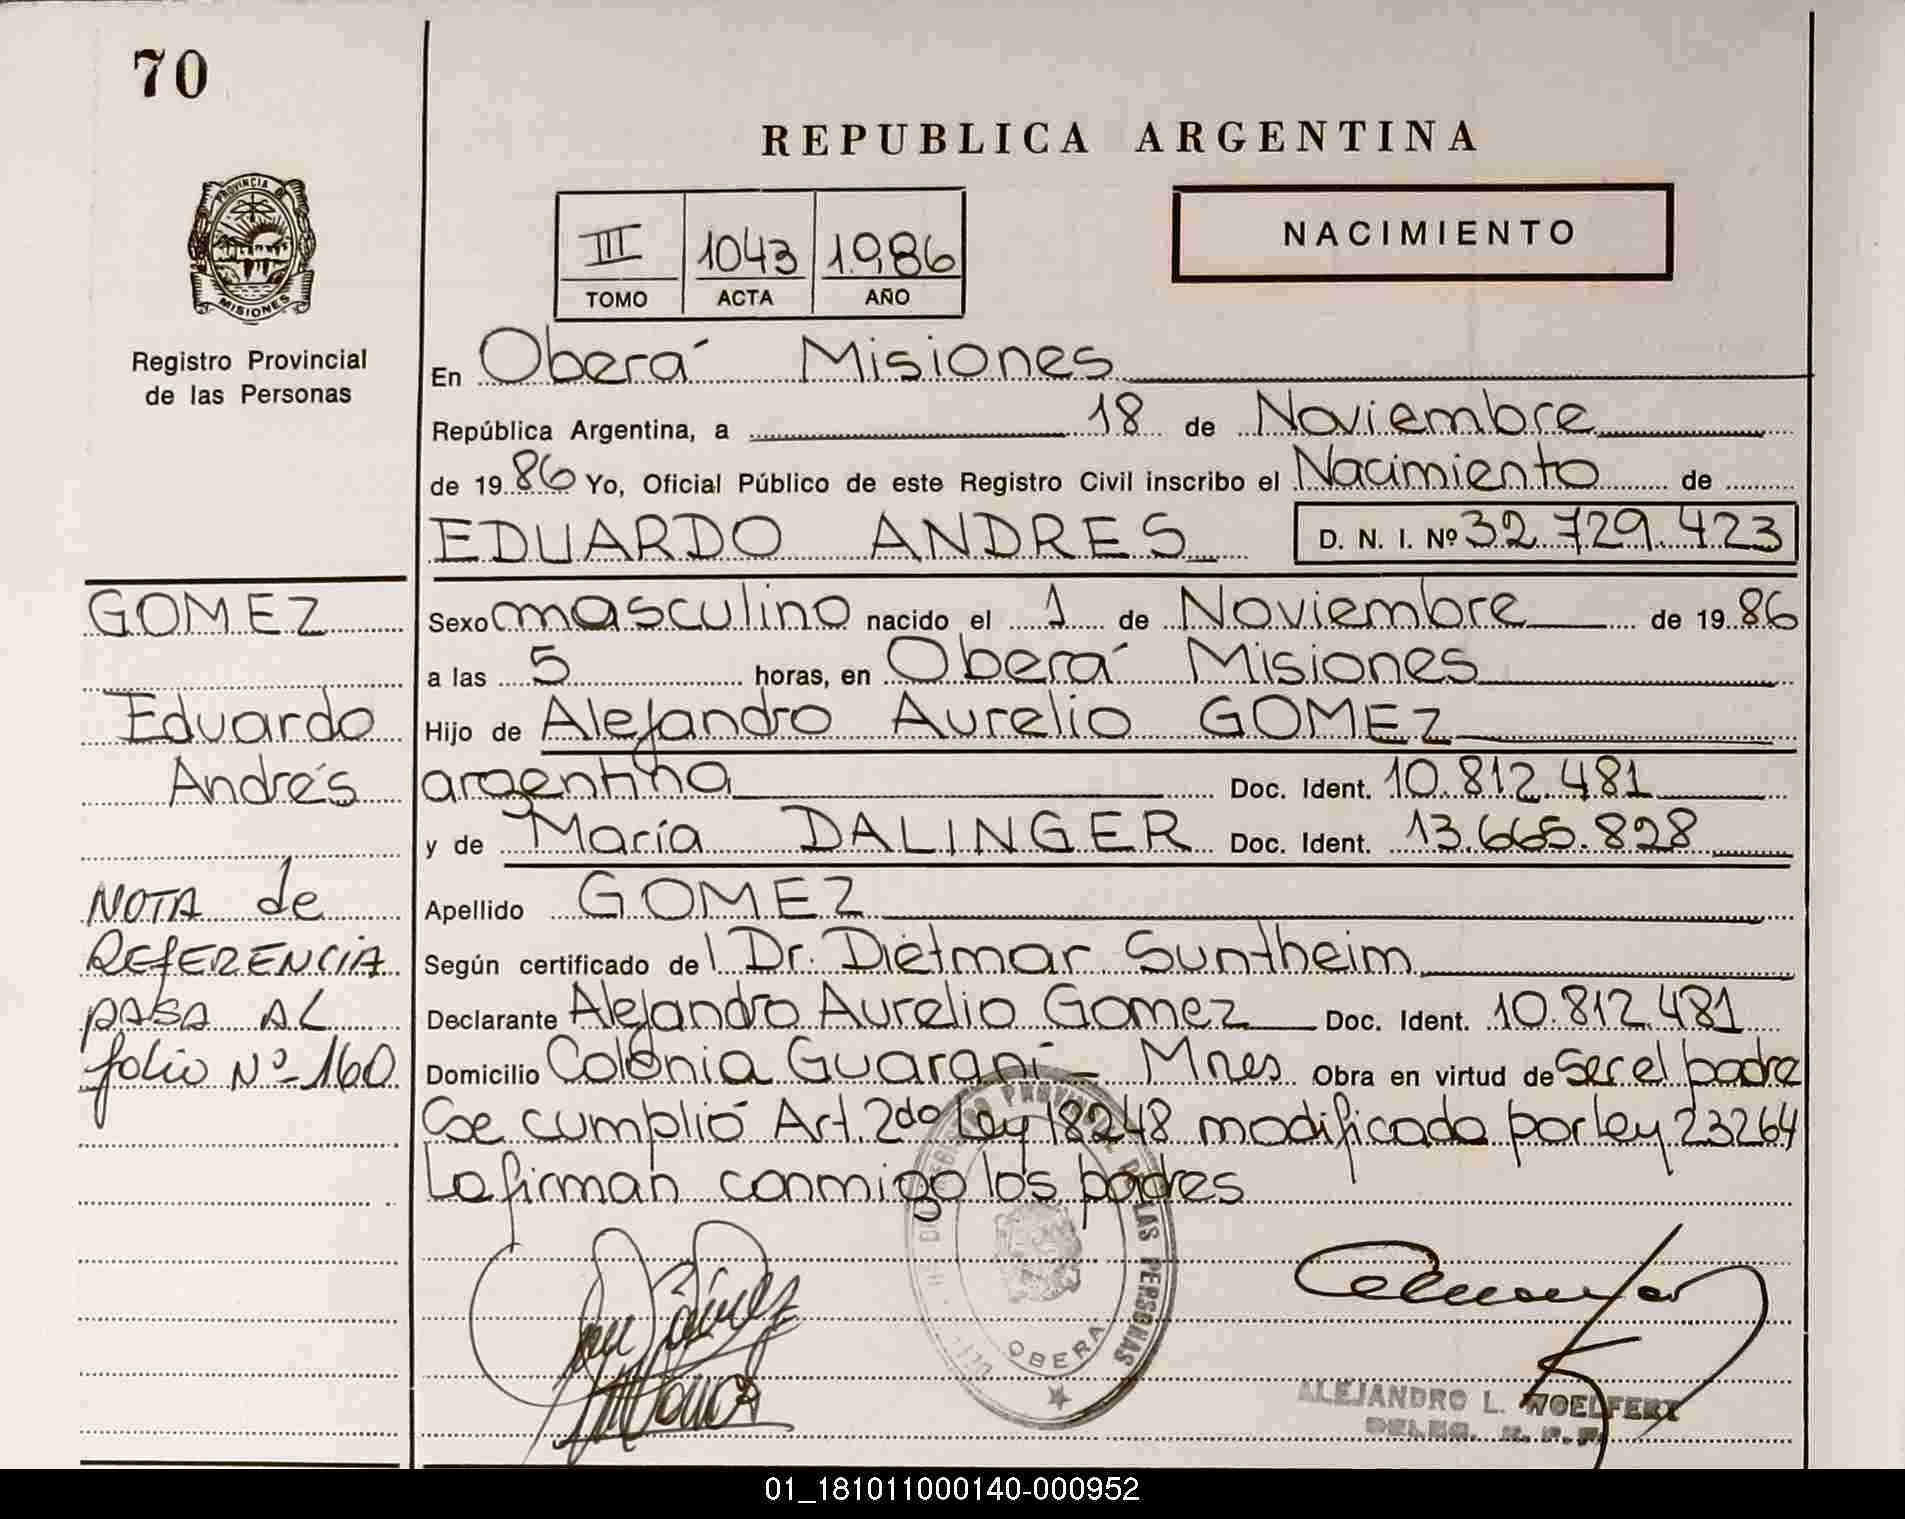 70
REPUBLICA ARGENTINA
PROVINCIA DE
MISIONES
Registro Provincial
de las Personas
III 1043 1986
TOMO ACTA AÑO
NACIMIENTO
En Oberá Misiones
República Argentina, a 18 de Noviembre
de 1986 Yo, Oficial Público de este Registro Civil inscribo el Nacimiento de
EDUARDO ANDRES D. N. I. Nº 32.729.423
GOMEZ
Eduardo
Andrés
NOTA de
REFERENCIA
PASA AL
folio Nº 160
Sexo masculino nacido el 1 de Noviembre de 1986
a las 5 horas, en Oberá Misiones
Hijo de Alejandro Aurelio GOMEZ
argentina Doc. Ident. 10.812.481
y de María DALINGER Doc. Ident. 13.665.828
Apellido GOMEZ
Según certificado del Dr. Dietmar Suntheim
Declarante Alejandro Aurelio Gomez Doc. Ident. 10.812.481
Domicilio Colonia Guaraní - Mnes Obra en virtud de ser el padre
Se cumplió Art. 2do Ley 18248 modificada por ley 23264
La firman conmigo los padres
REGISTRO PROVINCIAL DE LAS PERSONAS
OBERA
ALEJANDRO L. WOELFERT
DELEG. R. P. P.
01_181011000140-000952